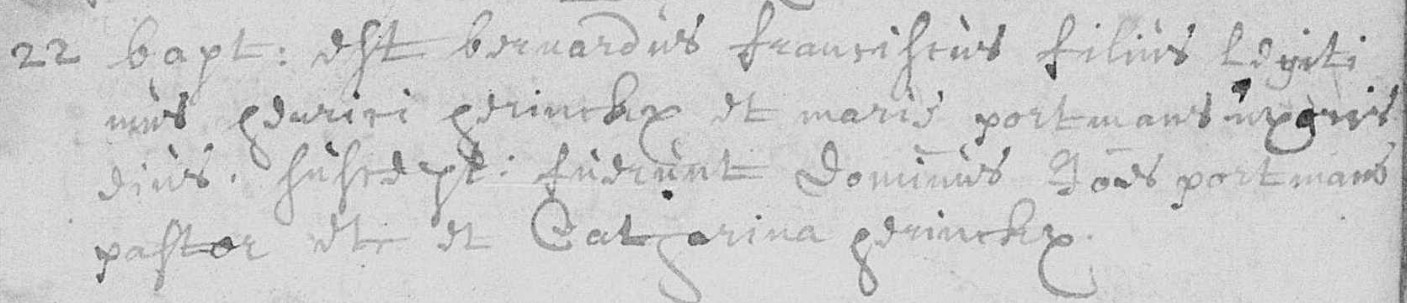 22 bapt: est bernardus franciscus filius legiti
mus henrici herinckx et marie portmans uxoris
eius. suscept: fuerunt Dominus Joēs portmans
pastor etc et Catharina herinckx.